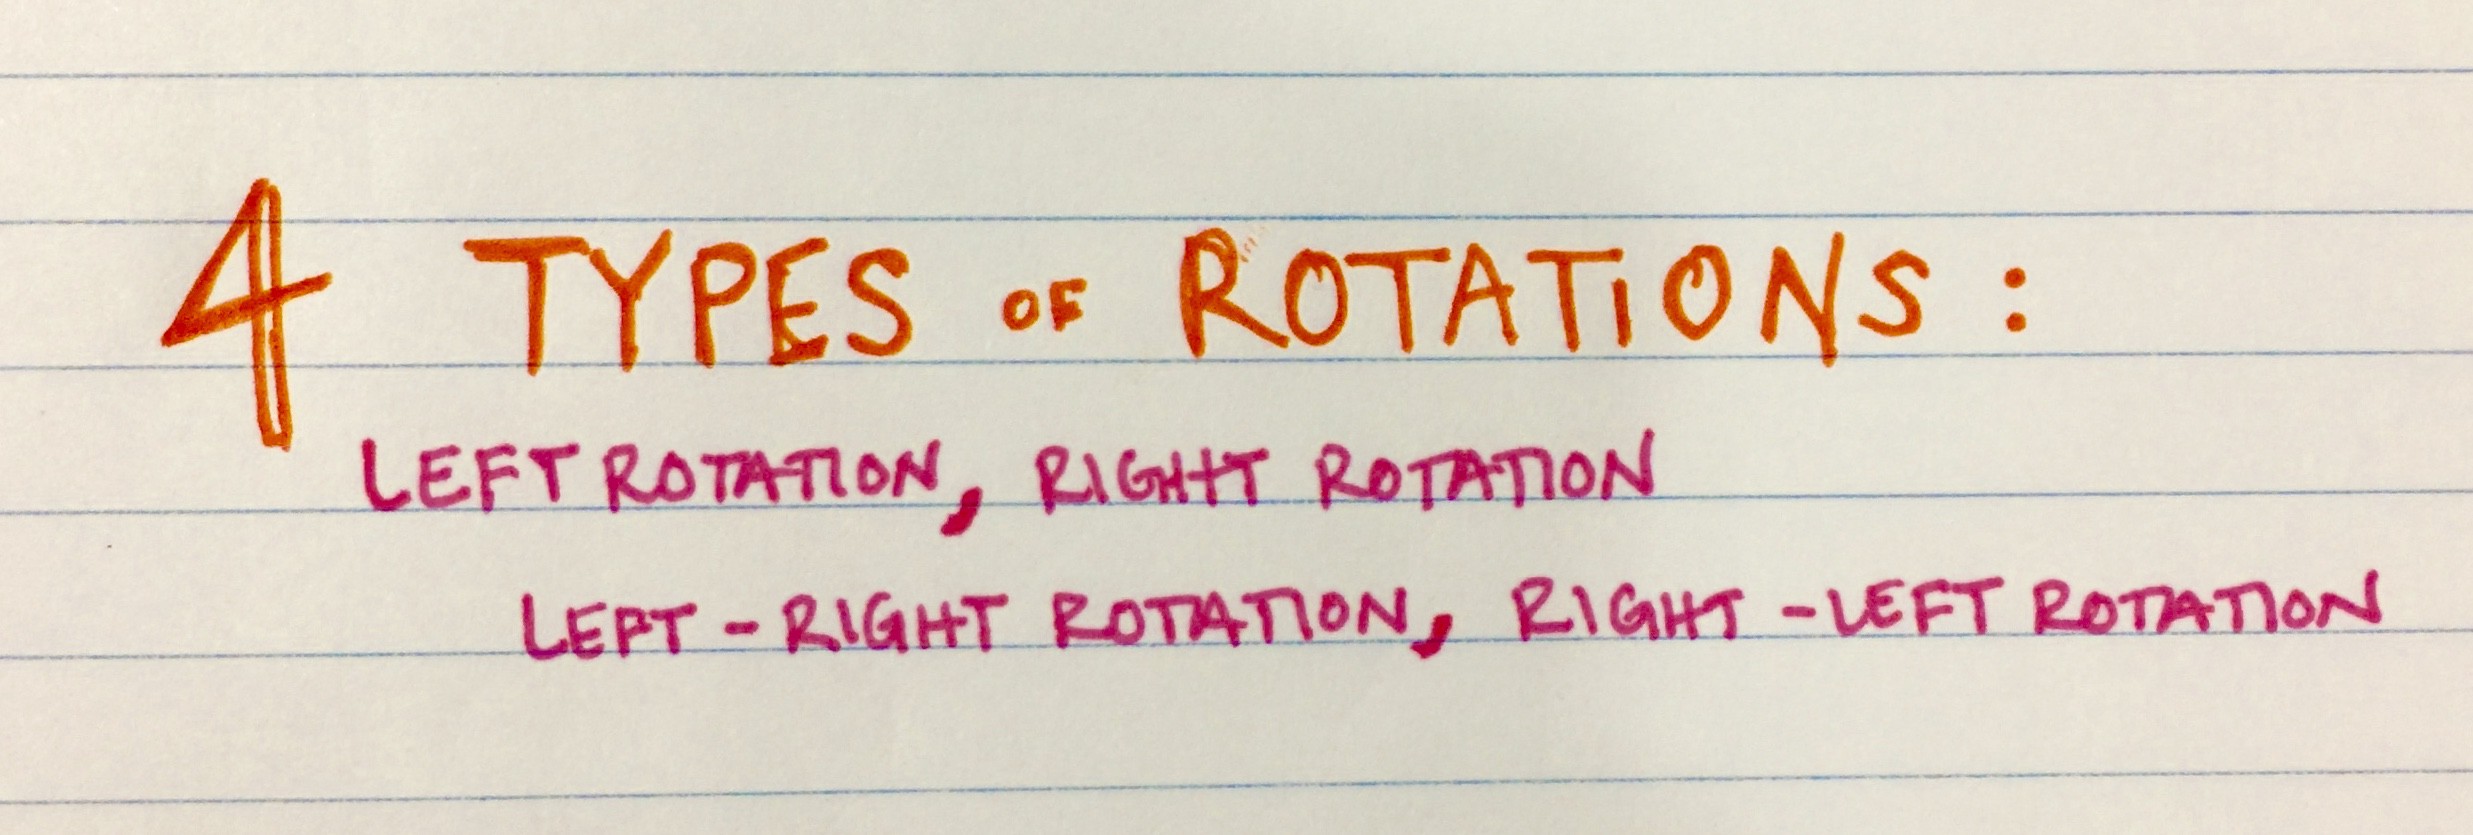 4 TYPES OF ROTATIONS:
LEFT ROTATION, RIGHT ROTATION
LEFT-RIGHT ROTATION, RIGHT-LEFT ROTATION